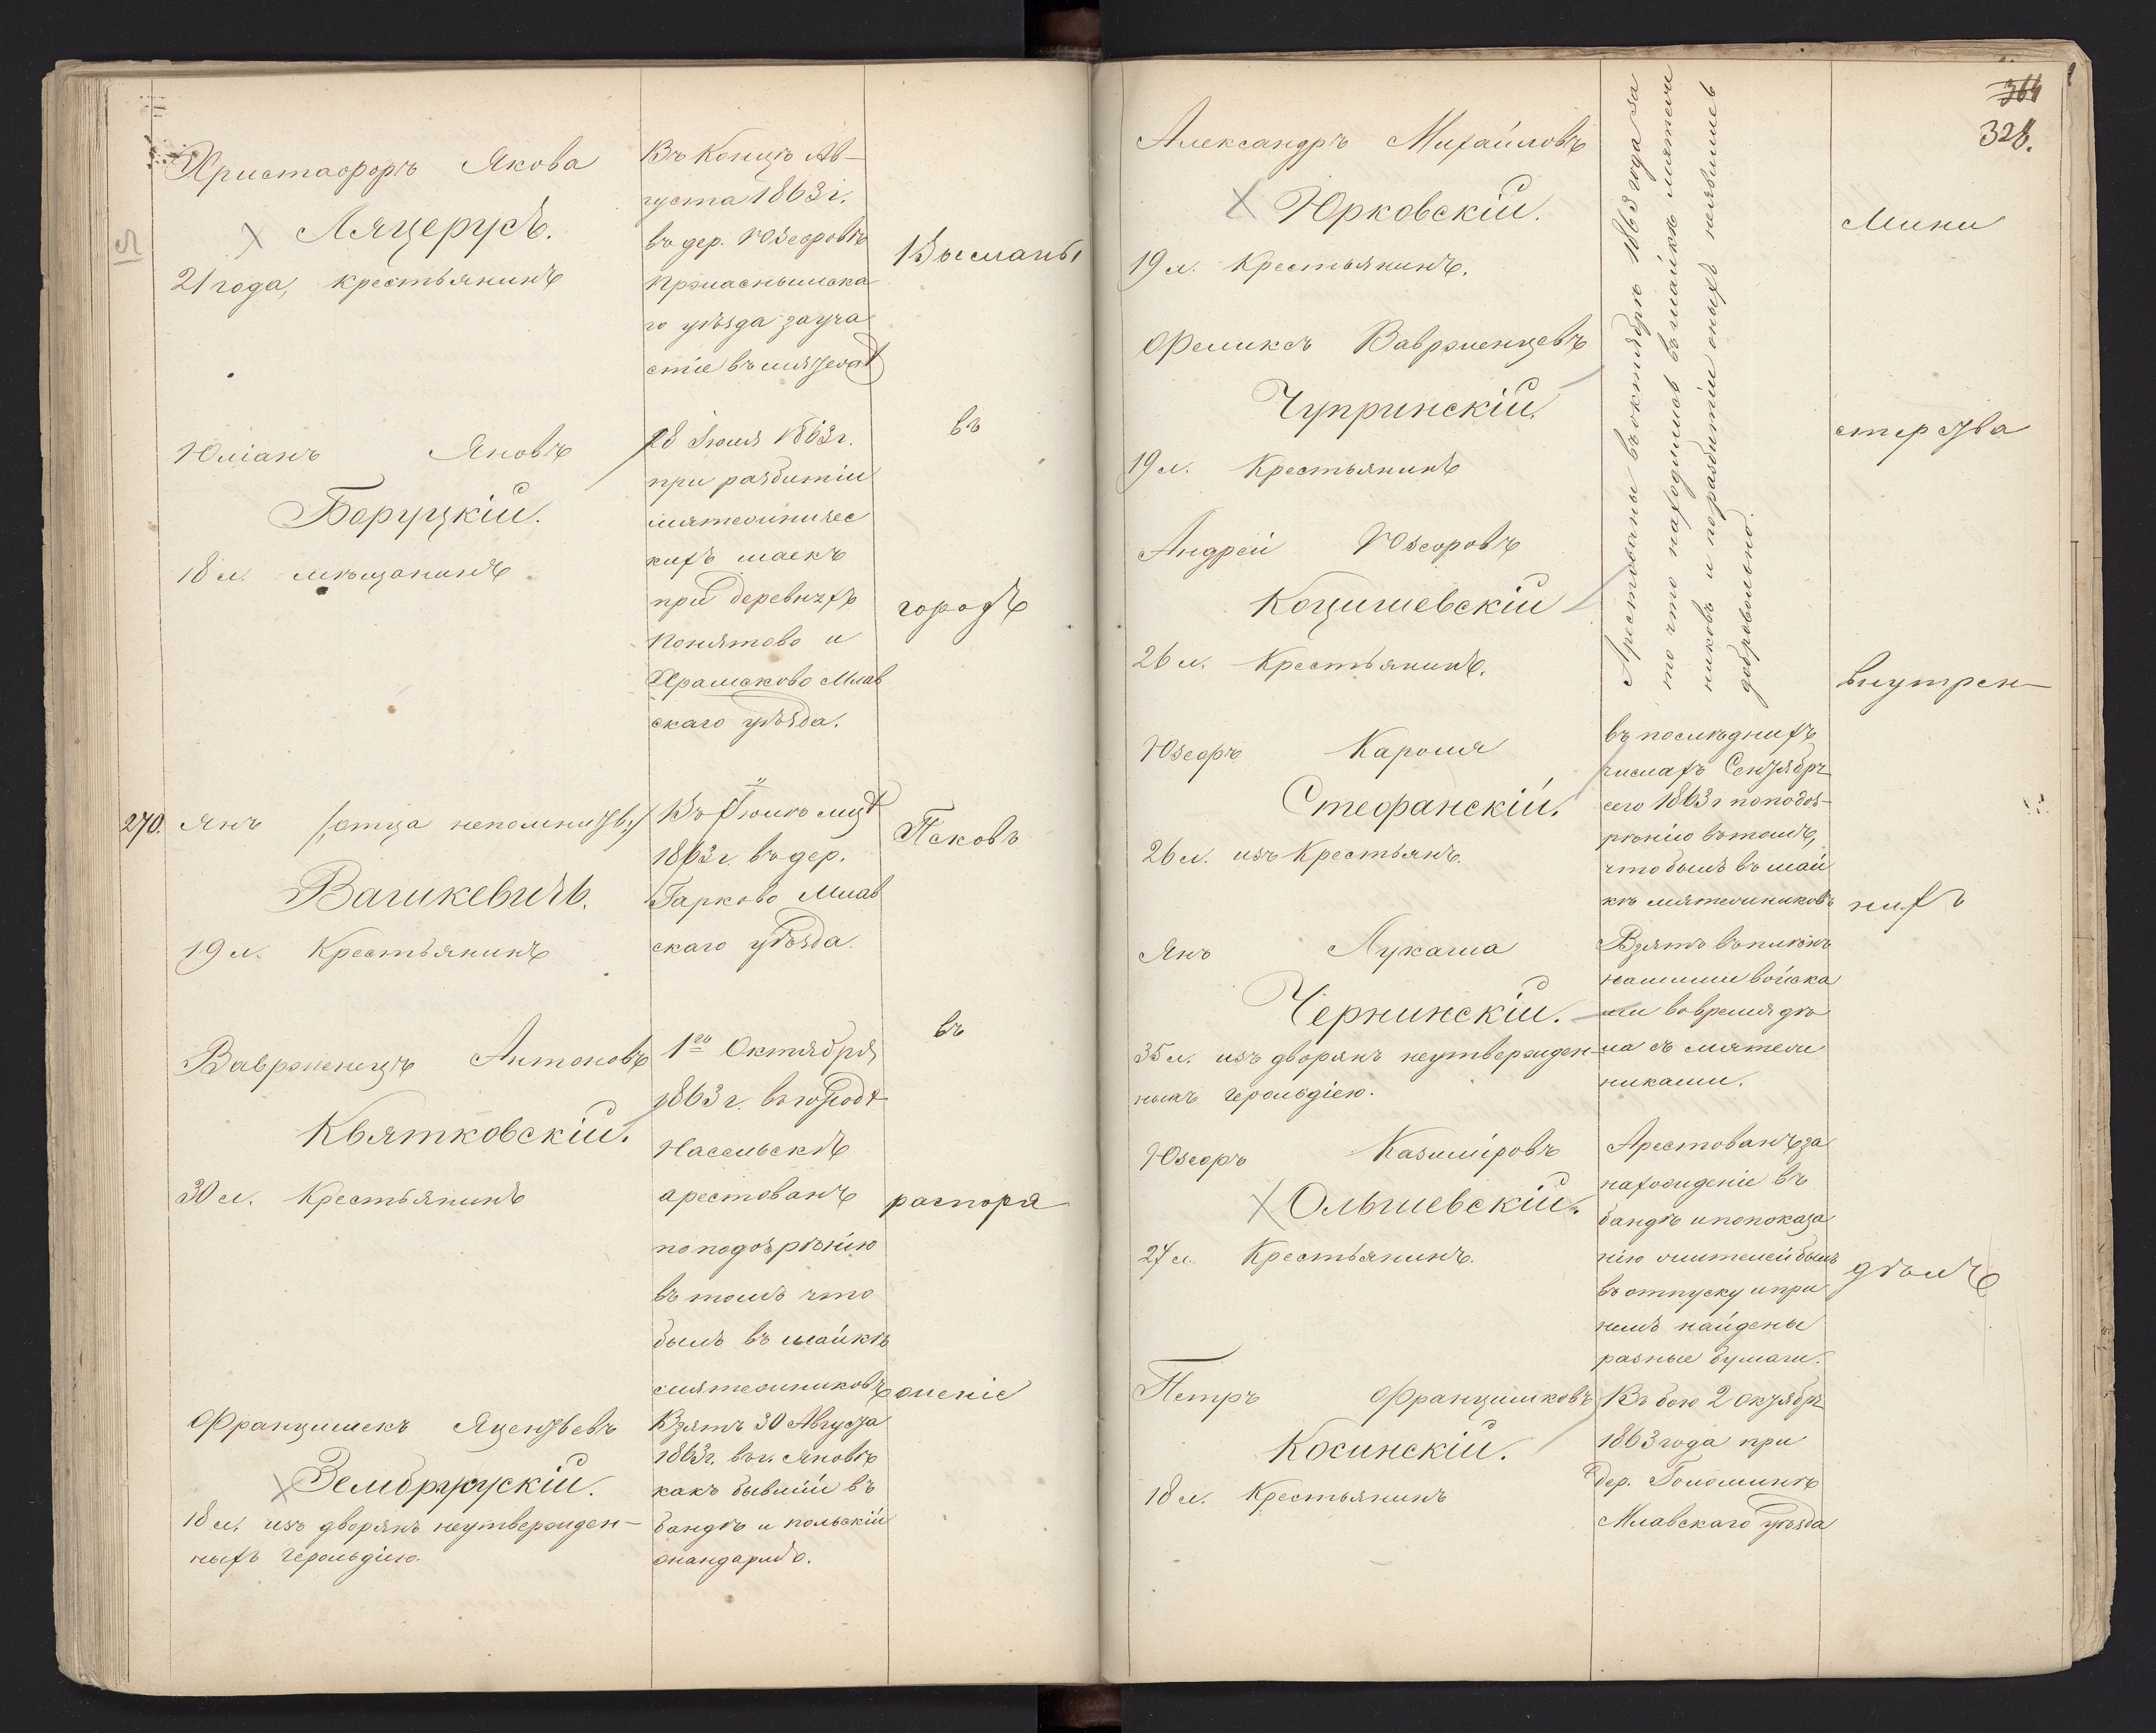 Христафоръ Якова
Ляцерусъ.
21 года, крестьянинъ
Въ Концѣ Ав-
густа 1863 г.
въ дер. Юзефовѣ
Прзасныска
го уѣзда за уча
стіе въ мятежѣ
Высланы
Юліанъ Яновъ
Боруцкій.
18 л. мѣщанинъ
28 Іюля 1863 г.
при разбитіи
мятежничес
кихъ шаекъ
при деревняхъ
Понятово и
Храмсково Млав
скаго уѣзда.
въ
городъ
270. Янъ /:отца непомнитъ:/
Вашкевичъ.
19 л. Крестьянинъ
Въ Іюлѣ мцѣ
1863 г. въ дер.
Гарково Млав
скаго уѣзда.
Псковъ
Ваврженецъ Антоновъ
Квятковскій.
30 л. Крестьянинъ
1го Октября
1863 г. въ городѣ
Насельскѣ
арестованъ
по подозрѣнію
въ томъ что
былъ въ шайкѣ
мятежниковъ
въ
распоря
женіе
Францишекъ Яцентьевъ
Зембржускій.
18 л. изъ дворянъ неутвержден-
ныхъ Герольдіею.
Взятъ 30 Августа
1863 г. въ г. Яновѣ
какъ бывшій въ
бандѣ и польскій
жандармъ.
364
328.
Александръ Михайловъ
Юрковскій.
19 л. Крестьянинъ.
Феликсъ Ваврженцевъ
Чупринскій.
19 л. Крестьянинъ
Андрей Юзефовъ
Коцишевскій
26 л. Крестьянинъ.
Арестованы въ октябрѣ 1863 года за
то что находились въ шайкѣ мятеж
никовъ и по разбитіи оныхъ явились
добровольно.
Мини
стерства
внутрен-
Юзефъ Кароля
Стефанскій.
26 л. изъ Крестьянъ.
въ послѣднихъ
числахъ Сентября
сего 1863 г по подоз-
рѣнію въ томъ,
что былъ въ шай
кѣ мятежниковъ
нихъ
Янъ Лукаша
Чернинскій.
35 л. изъ дворянъ неутвержден-
ныхъ Герольдіею.
Взятъ въ плѣнъ
нашими войска
ми во время дѣ
ла съ мятеж
никами.
Юзефъ Казиміровъ
Ольшевскій.
27 л. Крестьянинъ.
Арестованъ за
нахожденіе въ
бандѣ и по показа
нію жителей былъ
въ отпуску и при
немъ найдены
разные бумаги.
дѣлъ
Петръ Францишковъ
Косинскій.
18 л. Крестьянинъ
Въ бою 2 Октября
1863 года при
дер. Голоминѣ
Млавскаго уѣзда